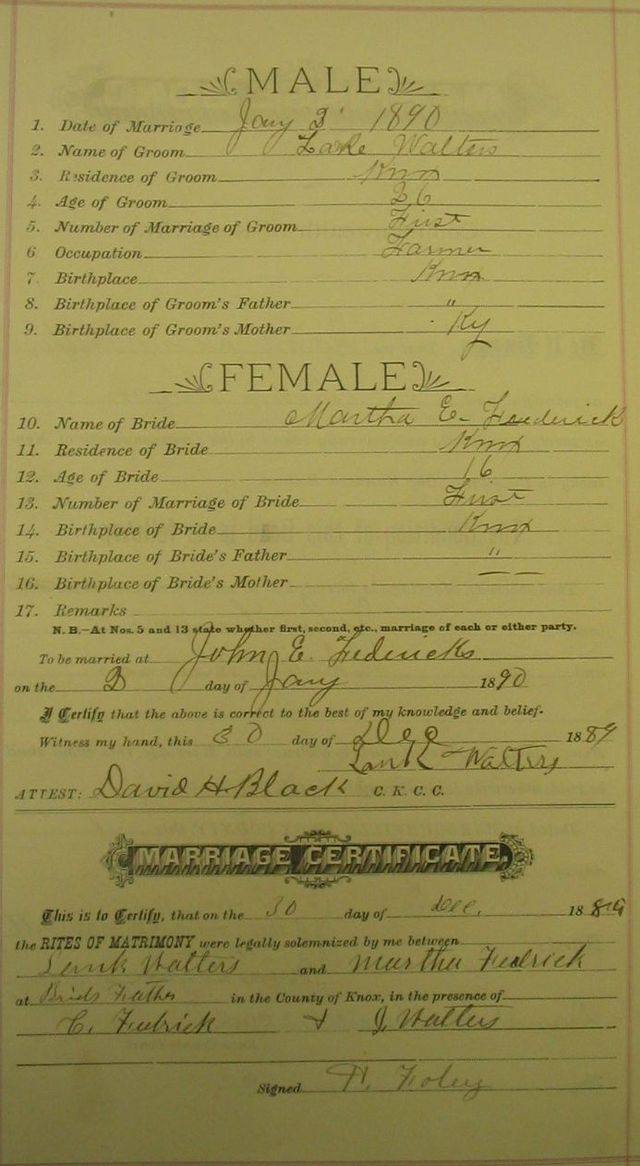 MALE
1. Date of Marriage Jany 2' 1890
2. Name of Groom Walters
3. Residence of Groom Knox
4. Age of Groom 26
5. Number of Marriage of Groom First
6 Occupation Farmer
7. Birthplace Knox
8. Birthplace of Groom's Father "
9. Birthplace of Groom's Mother Ky
FEMALE
10. Name of Bride Martha E. Frederick
11. Residence of Bride Knox
12. Age of Bride 16
13. Number of Marriage of Bride First
14. Birthplace of Bride Knox
15. Birthplace of Bride's Father "
16. Birthplace of Bride's Mother —
17. Remarks
N. B.—At Nos. 5 and 13 state whether first, second, etc., marriage of each or either party.
To be married at John E. Federicks
on the 2 day of Jany 1890
I Certify that the above is correct to the best of my knowledge and belief.
Witness my hand, this 30 day of Dec 1889
Lank Walters
ATTEST: David H Black C. K. C. C.
MARRIAGE CERTIFICATE.
This is to Certify, that on the 30 day of Dec. 1889
the RITES OF MATRIMONY were legally solemnized by me between
Lank Walters and Martha Fedrick
at Brids Father in the County of Knox, in the presence of
C. Fedrick & J. Walters
Signed Foley